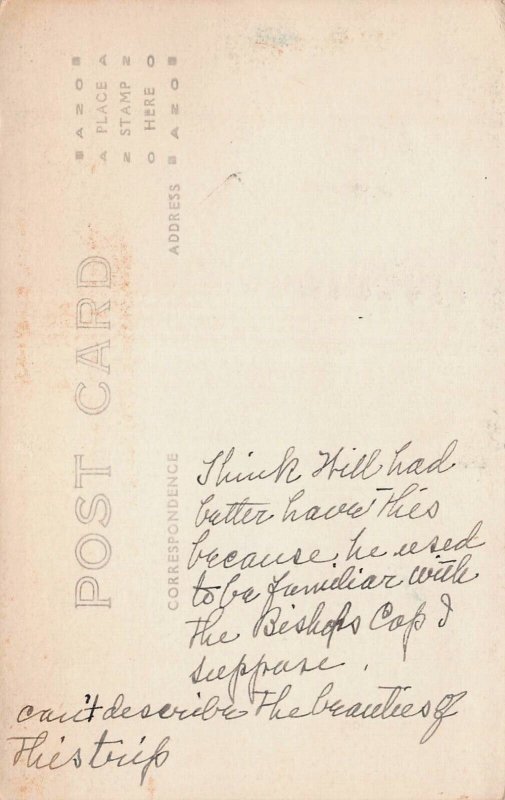 AZO
PLACE
STAMP
HERE
AZO
POST CARD
CORRESPONDENCE
ADDRESS
Think Will had
better have this
because he used
to be familiar with
the Bishops Cap I
suppose.
can't describe the beauties of
this trip